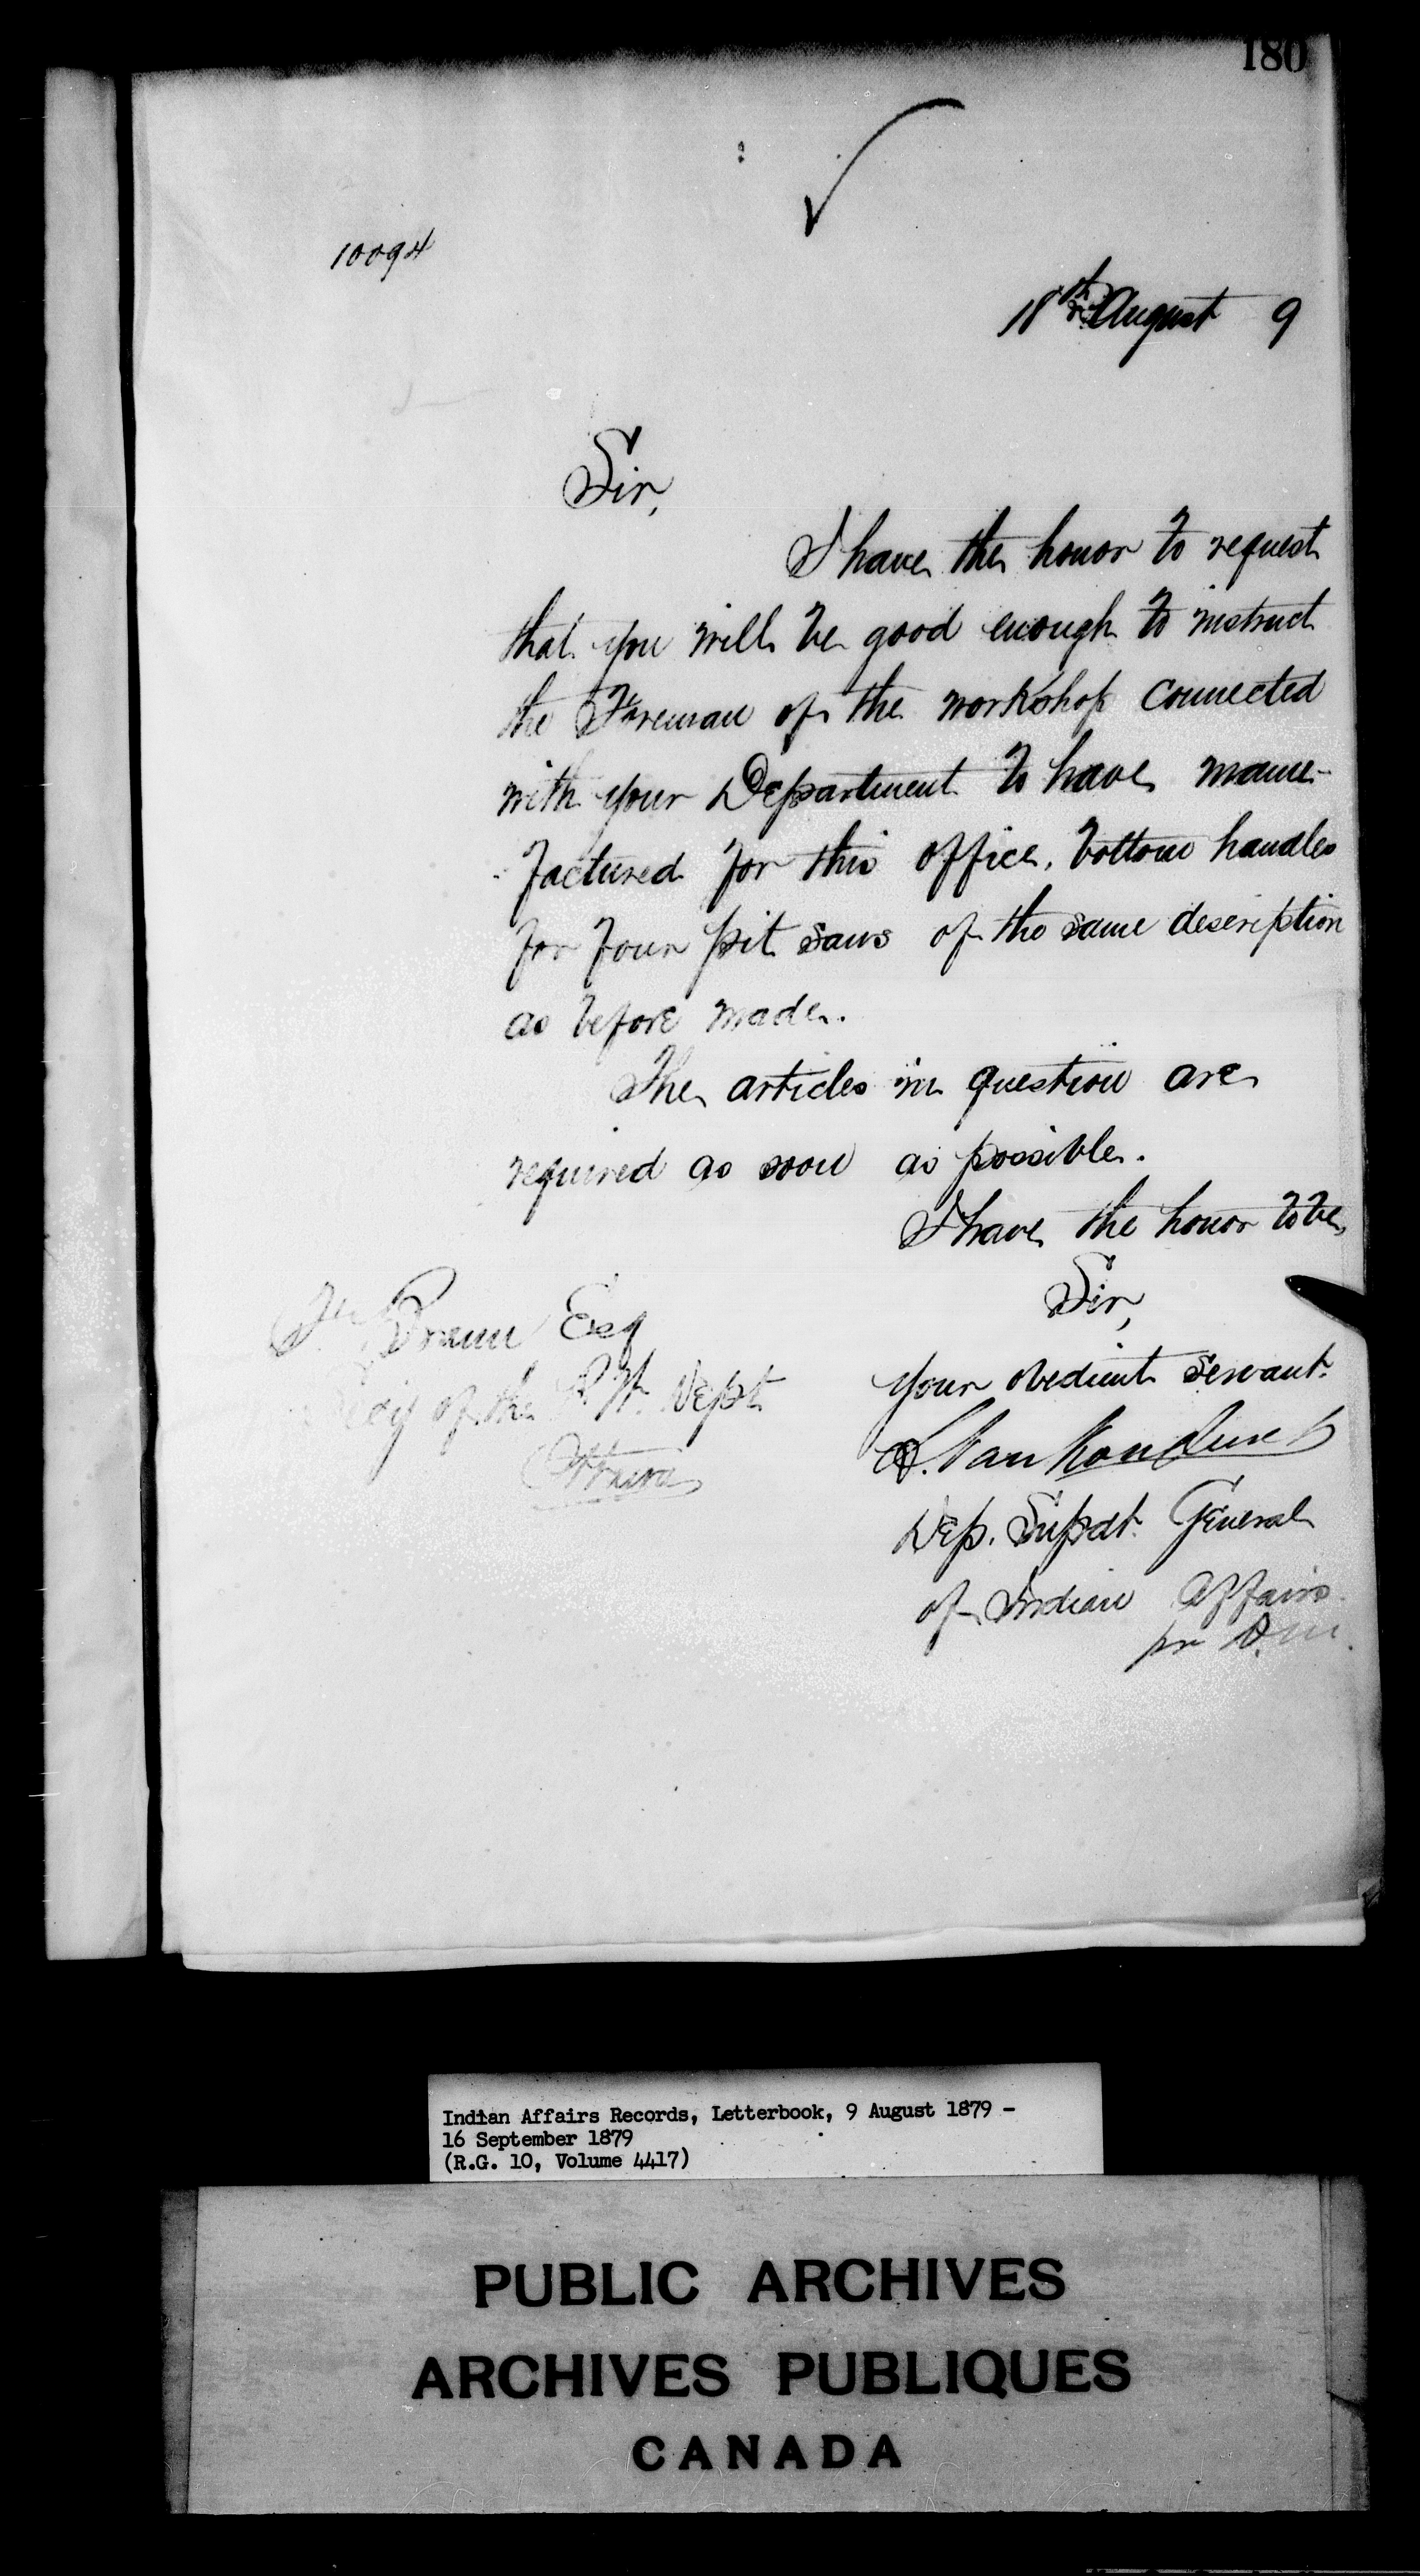 180
10094
18th August 9
Sir,
I have the honor to request
that you will be good enough to instruct
the Foreman of the workshop connected
with your Department to have manu-
-factured for this office, bottom handles
for four pit saws of the same description
as before made.
The articles in question are
required as soon as possible.
I have the honor to be,
Sir,
Your obedient servant.
L. VanKoughnet
Dep. Supdt. General
of Indian Affairs.
pr D.M.
Braun Esq
of the P.W. Dept
Ottawa
Indian Affairs Records, Letterbook, 9 August 1879 -
16 September 1879
(R.G. 10, Volume 4417)
PUBLIC ARCHIVES
ARCHIVES PUBLIQUES
CANADA